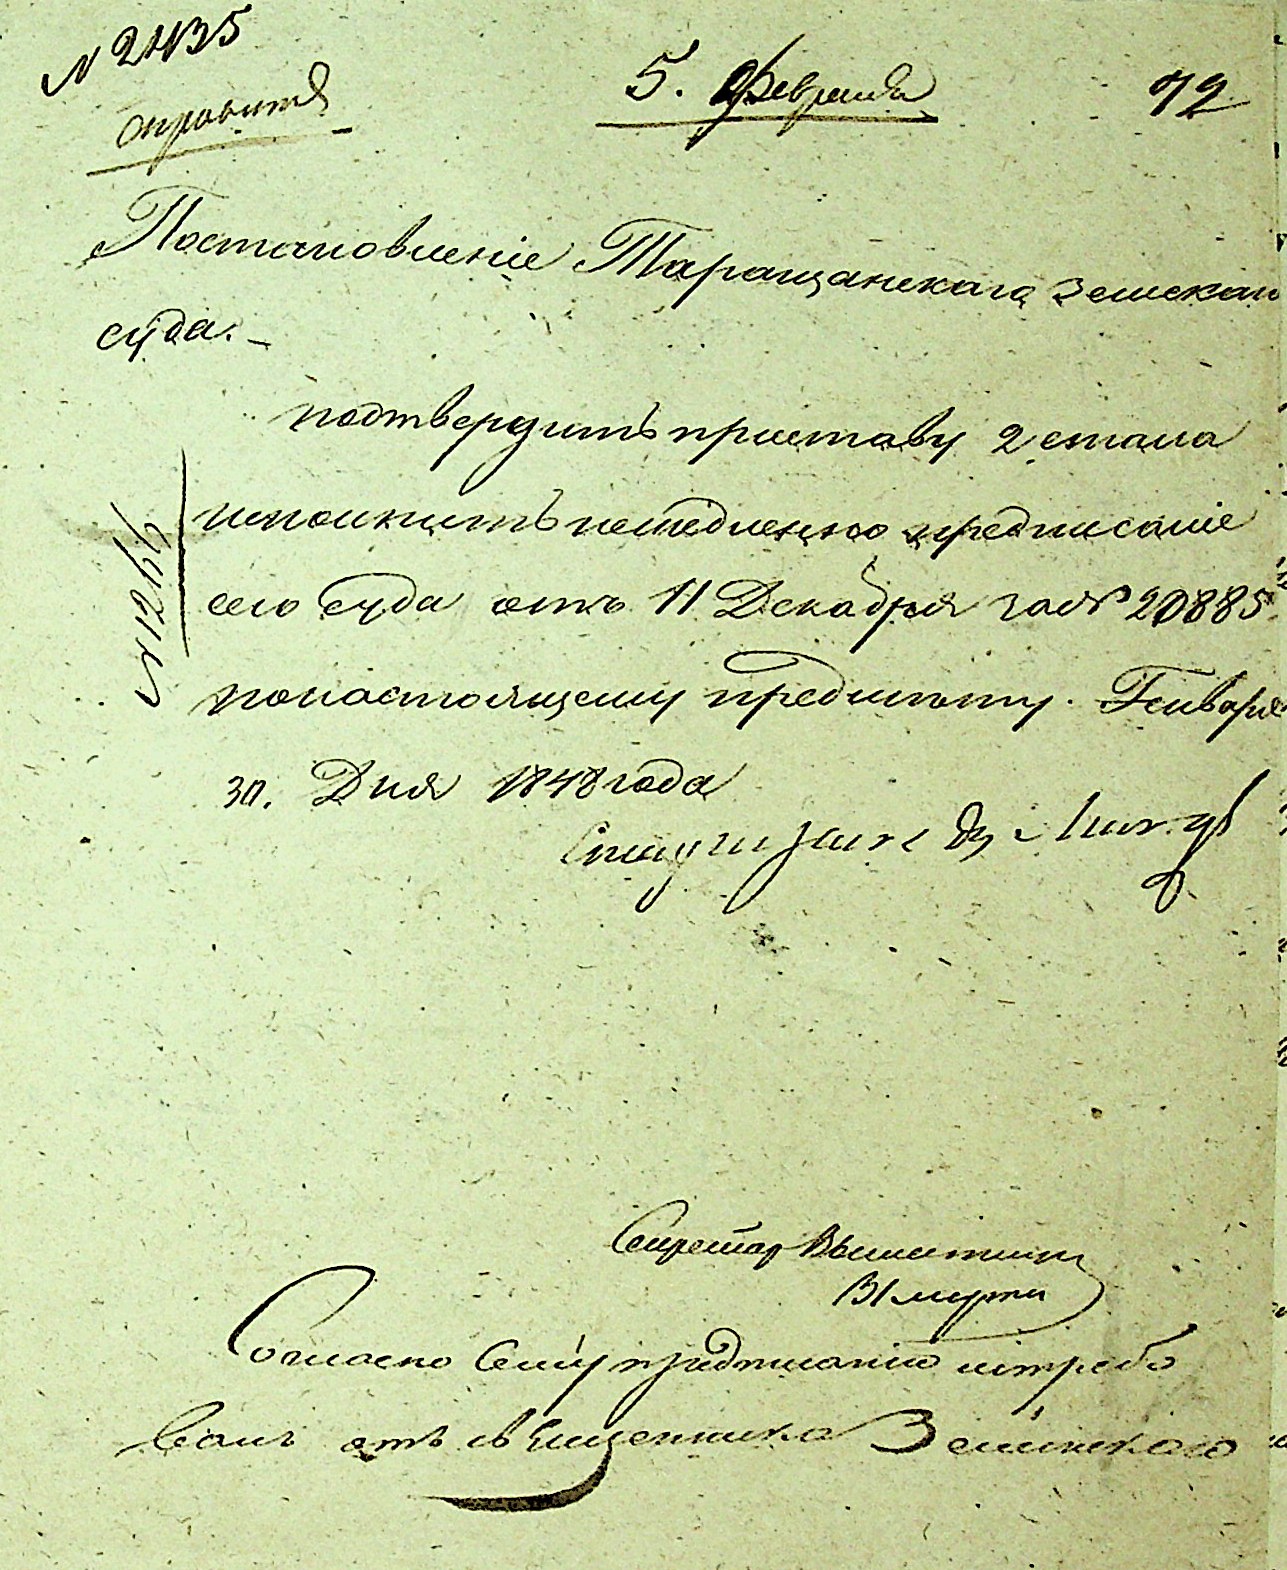 № 2435
5. Февраля
72
Постановленіе Таращанскаго Земскаго
суда.
подтвердить приставу 2 стана
исполнить немедленно предписаніе
сего Суда отъ 11 Декабря за № 20885
по настоящему предмету. Генваря
30. Дня 1848 года
Секретар
Согласно Сему предписанію истребо
вать отъ священника Зелинскаго